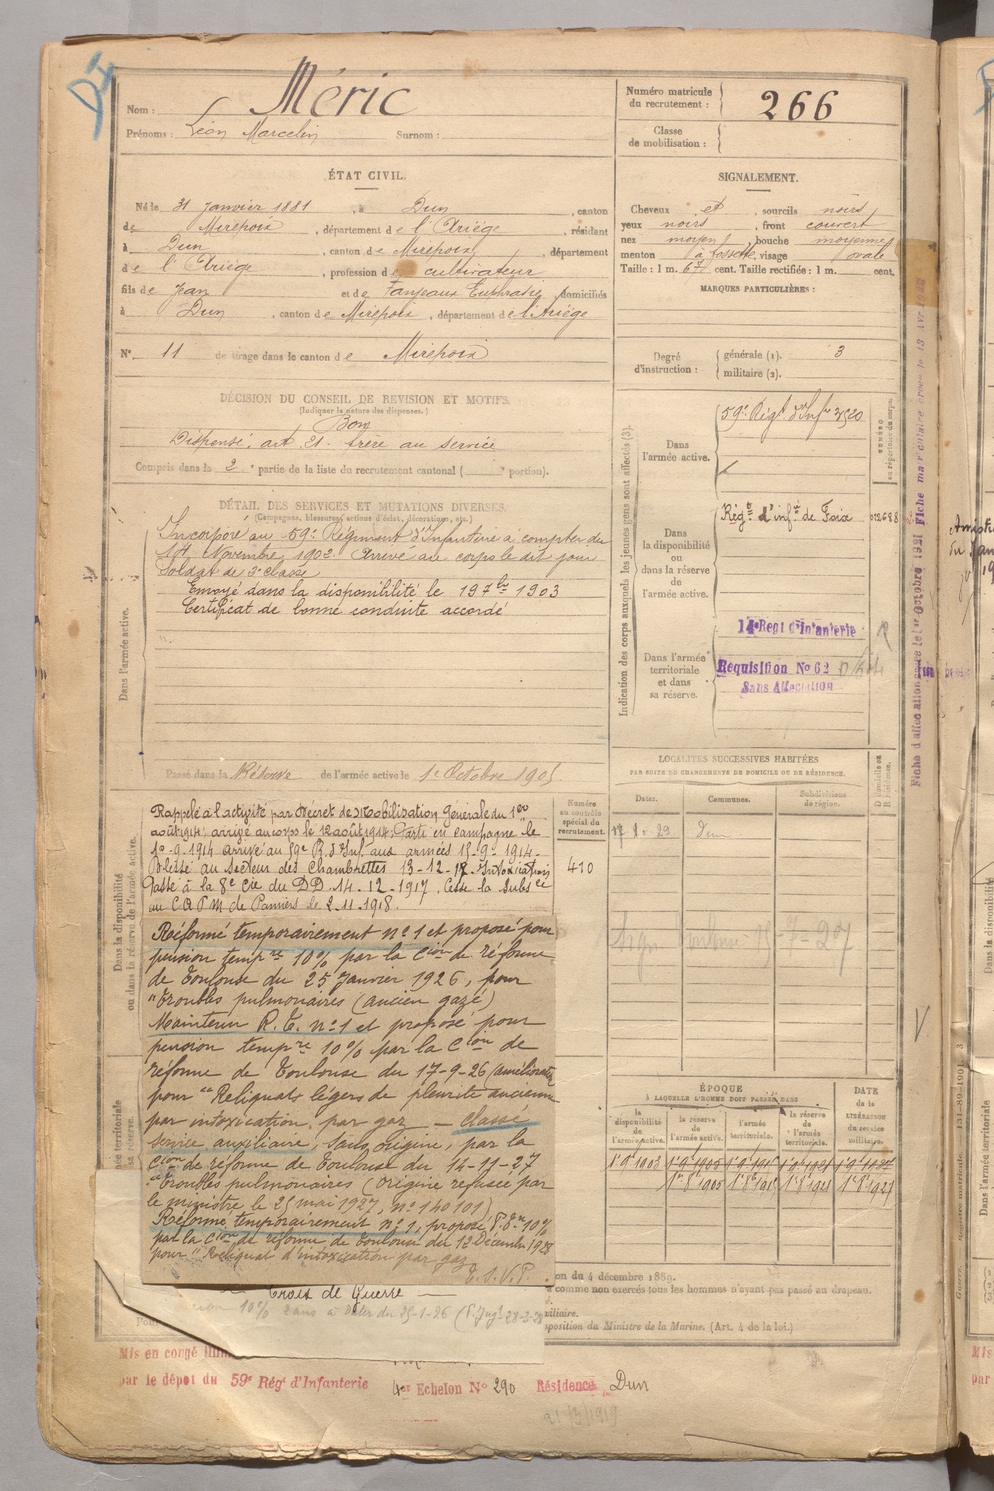 Méric
Nom :
Prénoms : Léon Marcelin Surnom :
Numéro matricule du recrutement : 266
Classe de mobilisation :
ÉTAT CIVIL.
Né le 31 Janvier 1881, à Dun, canton
de Mirepoix, département de l'Ariège, résidant
à Dun, canton de Mirepoix, département
de l'Ariège, profession de cultivateur
fils de Jean et de Fanjeaux Euphrasie domiciliés
à Dun, canton de Mirepoix, département de l'Ariège
N° 11 de tirage dans le canton de Mirepoix
SIGNALEMENT.
Cheveux et, sourcils noirs
yeux noirs, front couvert
nez moyen, bouche moyenne
menton à fossette, visage ovale
Taille : 1 m. 67 cent. Taille rectifiée : 1 m. cent.
MARQUES PARTICULIÈRES :
Degré d'instruction : générale (1). 3
militaire (2).
DÉCISION DU CONSEIL DE REVISION ET MOTIFS.
(Indiquer la nature des dispenses.)
Bon
Dispensé, art. 21. frère au service
Compris dans la 2e partie de la liste du recrutement cantonal ( portion).
DÉTAIL DES SERVICES ET MUTATIONS DIVERSES.
(Campagnes, blessures, actions d'éclat, décorations, etc.)
Incorporé au 59e Régiment d'Infanterie à compter du
Novembre 1902. Arrivé au corps le dit jour
Soldat de 2e classe
Envoyé dans la disponibilité le 19 7bre 1903
Certificat de bonne conduite accordé
Dans l'armée active.
Passé dans la Réserve de l'armée active le 1er Octobre 1905
Indication des corps auxquels les jeunes gens sont affectés (3).
Dans l'armée active.
59e Régt d'Infie 3520
NUMÉRO au répertoire du corps.
Dans la disponibilité ou dans la réserve de l'armée active.
Régt d'infie de Foix 012688
Dans l'armée territoriale et dans sa réserve.
14e Regt d'Infanterie
Requisition No 62
Sans Affectation
LOCALITÉS SUCCESSIVES HABITÉES
PAR SUITE DE CHANGEMENTS DE DOMICILE OU DE RÉSIDENCE.
Dates. Communes. Subdivisions de région. D domicile ou R résidence.
Dun
Dans la disponibilité ou dans la réserve de l'armée active.
Rappelé à l'activité par Décret de Mobilisation Générale du 1er
août 1914, arrivé au corps le 12 août 1914. Parti en campagne le
10-9-1914 arrivé au 59e R. d'Inf. aux armées 15-9-1914-
Blessé au Secteur des Chambrettes 13-12-17. Intoxication
Passé à la 8e Cie du DD 14-12-1917. Cesse la Subsce
au CAPM de Pamiers le 2.11.1918.
Numéro au contrôle spécial du recrutement.
410
Réformé temporairement n° 1 et proposé pour
pension tempre 10% par la Cion de réforme
de Toulouse du 25 Janvier 1926, pour
"Troubles pulmonaires (ancien gazé)
Maintenu R.T. n° 1 et proposé pour
pension tempre 10% par la Cion de
réforme de Toulouse du 17-9-26
pour "Reliquats légers de pleurite ancienne
par intoxication par gaz. - Classé
service auxiliaire, sans origine, par la
Cion de réforme de Toulouse du 14-11-27
"Troubles pulmonaires (origine refusée par
le ministre le 25 mai 1927, n° 140101)
Réformé temporairement n° 1, proposé P.T. 10%
par la Cion de réforme de Toulouse du 12 Décembre 1928
pour "Reliquat d'intoxication par gaz
T.S.V.P.
ÉPOQUE
À LAQUELLE L'HOMME DOIT PASSER DANS
la disponibilité de l'armée active. la réserve de l'armée active. l'armée territoriale. la réserve de l'armée territoriale.
DATE de la LIBÉRATION du service militaire.
1er 9 1903 1er 9bre 1905 1er 9 1915 1er 9 1921 1er 9 1927
1er 8 1905 1er 8 1915 1er 8 1921 1er 8 1927
on du 4 décembre 1889.
comme non exercés tous les hommes n'ayant pas passé au drapeau.
position du Ministre de la Marine. (Art. 4 de la loi.)
Croix de Guerre
10% 2 ans à dater du 25-1-26
Mis en congé illim
par le dépôt du 59e Régt d'Infanterie
4er Echelon No 290 Résidence Dun